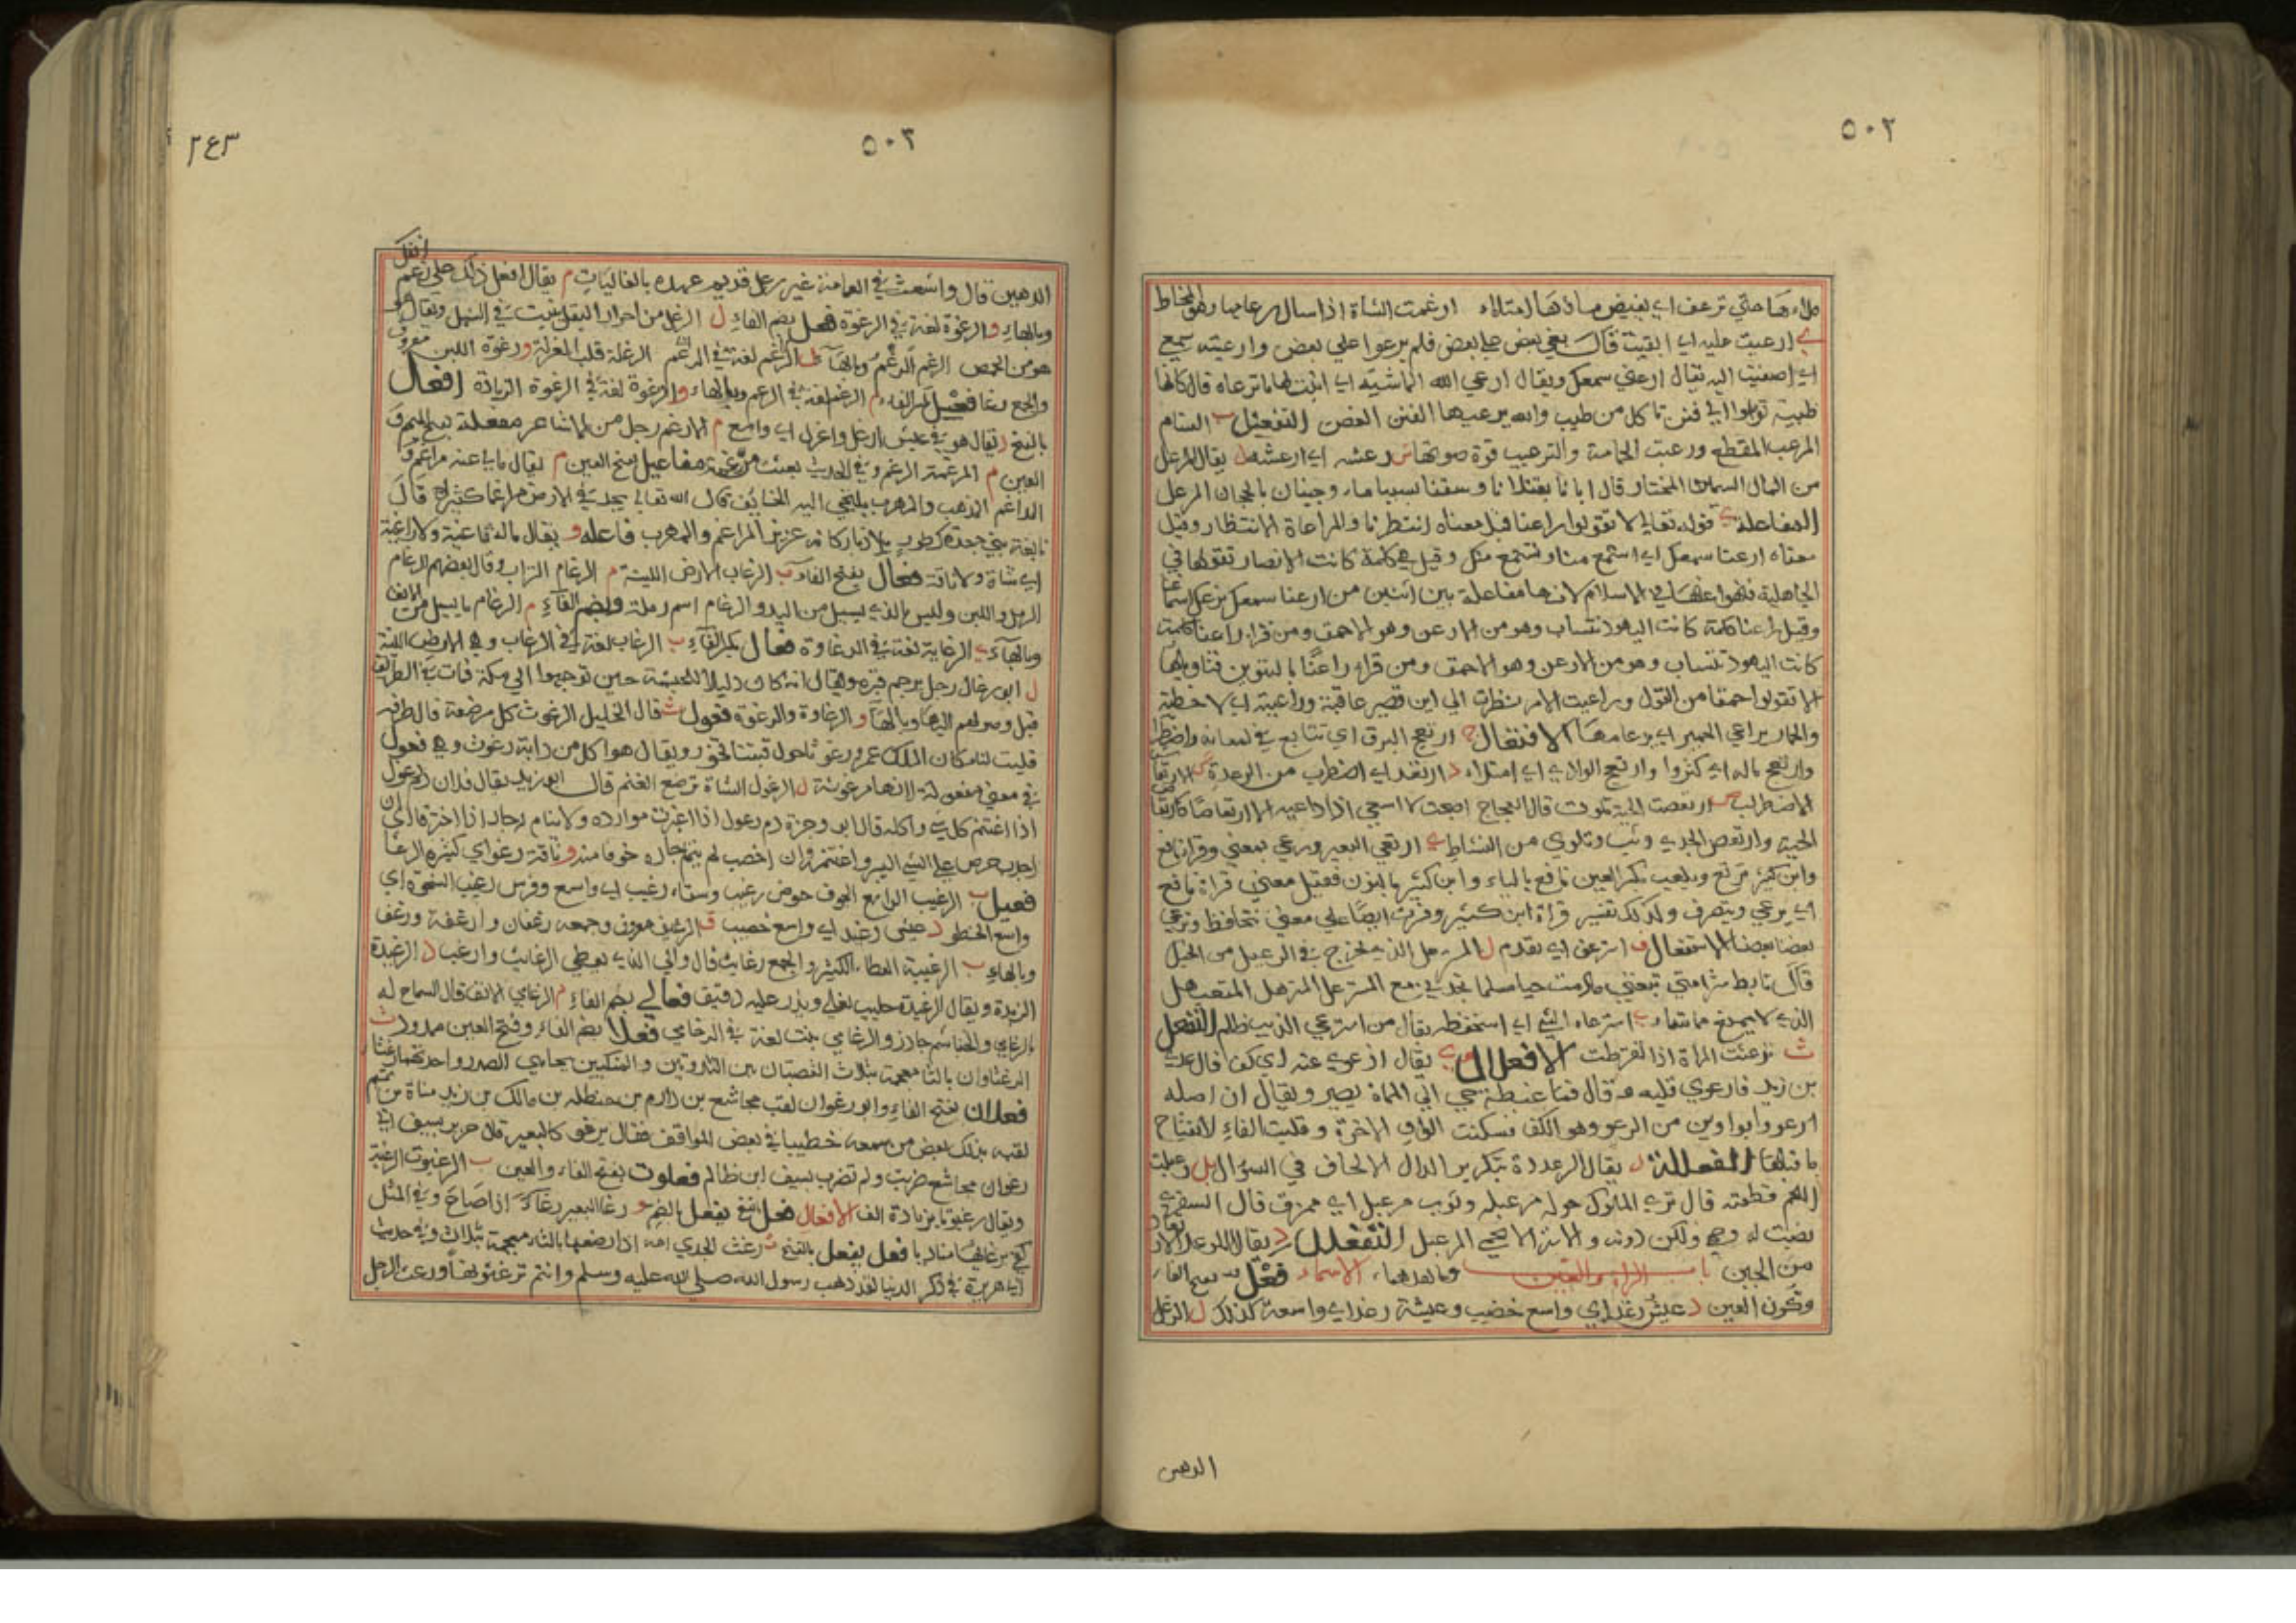 ٥٠٢
ملاءها حتي ترعف اي يفيض ماؤها لامتلاء ارغمت الشاة اذا سال رعامها وهو المخاط
ي ارعيت عليه اي ابقيت قال بغي بعض علي بعض فلم يرعوا علي بعض وارعيته سمع
اي اصغيت اليه يقال ارعني سمعك ويقال ارعي الله الماشية اي انبت لها ما ترعاه قال كانها
ظبية تو في فنن تاكل من طيب والله يرعيها الفنن الغصن التفعيل ب السنام
المرعب المقطع ورعبت الحمامة والترعيب قوة صوتها س رعشه اي ارعشه ل يقال المرعل
من المال السمان المختار قال ابانا بقتلانا وسقنا بسبينا وجينان بالهجان المرعل
المفاعلة ي قوله تعالي لا تقولوا راعنا قيل معناه انتظرنا والمراعاة الانتظار وقيل
معناه ارعنا سمعك اي استمع منا ونستمع منك وقيل هي كلمة كانت الانصار تقولها في
الجاهلية فنهوا عنها في الاسلام لانها مفاعلة بين اثنين من ارعنا سمعك
وقيل راعنا كلمة كانت اليهود تتساب وهو من الارعن وهو الاحمق ومن قراء راعنا كلمة
كانت اليهود تتساب وهو من الارعن وهو الاحمق ومن قراء راعنًا بالتنوين فتاويلها
لا تقولوا حمقا من القول وراعيت الامر نظرت الي اين تصير عاقبة وراعيته اي لاحظته
والحمار يراعي الحمير اي يرعا معها الافتعال ج ارتعج البرق اي تتابع في لمعانه واضطرب
وارتعج ماله اي كثروا وارتعج الوادي اي امتلاء د ارتعد اي اضطرب من الرعدة
الاضطراب ص ارتعصت الحية تلوت قال العجاج لا اسعي الا ارتعاصا
الحية وارتعص الجدي وثب وتلوي من النشاط ي ارتعي البعير ورعي بمعني وقرا نافع
وابن كثير يرتع ويلعب بكسر العين نافع بالياء وابن كثير بالنون فقيل معني قراة نافع
اي يرعي ويتصرف ولذلك تفسير قراة ابن كثير وقريت ايضا علي معني نتحافظ ونرعي
بعضنا بعضا الاستفعال ف استرعف اي تقدم ل المسترعل الذي يخرج في الرعيل من الخيل
قال تابط شرا متي تبغني ما دمت حيا مسلما تجدني مع المسترعل المتعبهل
الذي لا يمنع مما يشاء ي استرعاه الشي اي استحفظه يقال من استرعي الذيب ظلم التفعل
ث ترعثت المراة اذا تقرطت الافعلال ي يقال ارعوي عنه اي كف قال عدي
بن زيد فارعوي قلبه وقال فما غبطة حي الي الممات يصير ويقال ان اصله
ارعوو بواوين من الرعو وهو الكف فسكنت الواو الاخرة وقلبت الفاء لانفتاح
ما قبلها الفعللة د يقال الرعددة بتكرير الدال الالحاف في السؤال بل رعبلت
اللحم قطعته قال تري الملوك حوله مرعبله وثوب مرعبل اي ممزق قال الشنفري
نصبت له وجهي ولكن دونه ولا ستر الا تحمي المرعبل التفعلل د يقال
من الجبن باب الراء والغين وما بعدهما الاسماء فعْل بفتح الفاء
وسكون العين د عيش رغد اي واسع خصيب وعيشة رغد اي واسعة كذلك ل الرغل
الدهن
٥٠٣
٢٤٣
انفك
الدهين قال واشعث في العامنة غير رعل قديم عهده بالفاليات م يقال افعل ذلك علي رغم
وبالهاء و الرغوة لغة في الرغوة فعل بضم الفاء ل الرغل من احرار البقل ينبت في السهل ويقال
هو من الحمص الرغم الرغم وبالهاء م الرغم لغة في الرغم الرغلة قلب الغرلة و رغوة اللبن معروف
والجمع رغا فعل بكسر الفاء م الرغم لغة في الرغم وبالهاء و الرغوة لغة في الرغوة الزيادة افعال
بالفتح ل يقال هو في عيش ارغل واغرل اي واسع م الارغم رجل من الاشاعر مفعلة بفتح الميم و
العين م المرغمة الرغم وفي الحديث بعثت مرغمة مفاعل بفتح العين م يقال مالي عنه مراغم و
المراغم المذهب والمهرب يلتجي اليه الخايف قال الله تعالي يجد في الارض مراغما كثيرا قال
نابغة بني جعدة كطود يلاذ باركانه عزيز المراغم والمهرب فاعله و يقال ماله ثاغية ولا راغية
اي شاة ولا ناقة فعال بفتح الفاء ب الرغاب الارض اللينة م الرغام التراب وقال بعضهم الرغام
الرمل واللين وليس بالذي يسيل من اليد والرغام اسم رملة وبضم الفاء م الرغام ما يسيل من الانف
وبالهاء ي الرغاية لغة في الرغاوة فعال بكسر الفاء ب الرغاب لغة في الرغاب وهي الارض اللينة
ل ابو رغال رجل يرجم قبره ويقال انه كان دليلا للحبشة حين توجهوا الي مكة فمات في الطريق
قبل وصولهم اليها وبالهاء و الرغاوة والرغوة فعول ث قال الخليل الرغوث كل مرضعة قال طرفة
فليت لنا مكان الملك عمرو رغوثا حول قبتنا تخور ويقال هو كل من دابة رغوث وهي فعول
في معني مفعولة لانها مرغوثة ل الرغول الشاة ترضع الغنم قال ابو زيد يقال فلان رم رغول
اذا اغتنم كل شي واكله قال ابو وجزة رم رغول اذا اغبرت موارده ولا ينام له جار اذا اخترفا اي ان
اجدب حرص علي الشي اليسير واغتنم وان اخصب لم ينم جاره خوفا منه و ناقة رغو اي كثيرة الرغا
فعيل ب الرغيب الواسع الجوف حوض رغيب وسقاء رغيب اي واسع وفرس رغيب الشحوة اي
واسع الخطو د عيش رغيد اي واسع خصيب ف الرغيف معروف وجمعه رغفان وارغفة ورغف
وبالهاء ب الرغيبة العطاء الكثير والجمع رغايب قال والي الذي يعطي الرغايب وارغب د الرغيدة
الزبدة ويقال الرغيدة حليب يغلي ويذر عليه دقيق فعالي بضم الفاء م الرغامي الانف قال الشماخ له
بالرغامي والخياشم جارز والرغامي نبت لغة في الرخامي فعلا بضم الفاء وفتح العين ممدود ث
الرغثاوان بالثا معجمة بثلاث العصبتان بين الثندوتين والمنكبين بجانبي الصدر واحدتهما رغثا
فعلان بفتح الفاء و ابو رغوان لقب مجاشع بن دارم بن حنظله بن مالك بن زيد مناة بن تميم
لقبه بذلك بعض من سمعه خطيبا في بعض المواقف فقال يرغو كالبعير قال جرير بسيف ابي
رغوان مجاشع ضربت ولم تضرب بسيف ابن ظالم فعلوت بفتح الفاء والعين ب الرغبوت الرغبة
ويقال رغبوتا بزيادة الف الافعال فعل بالفتح يفعل بالضم و رغا البعير رغاء اذا صاح وفي المثل
كفي برغايها مناديا فعل يفعل بالفتح ث رغث الجدي امه اذا رضعها بالثاء معجمة بثلاث وفي حديث
ابا هريرة في ذكر الدنيا لقد ذهب رسول الله صلي الله عليه وسلم وانتم ترغثونها ورغث الرجل